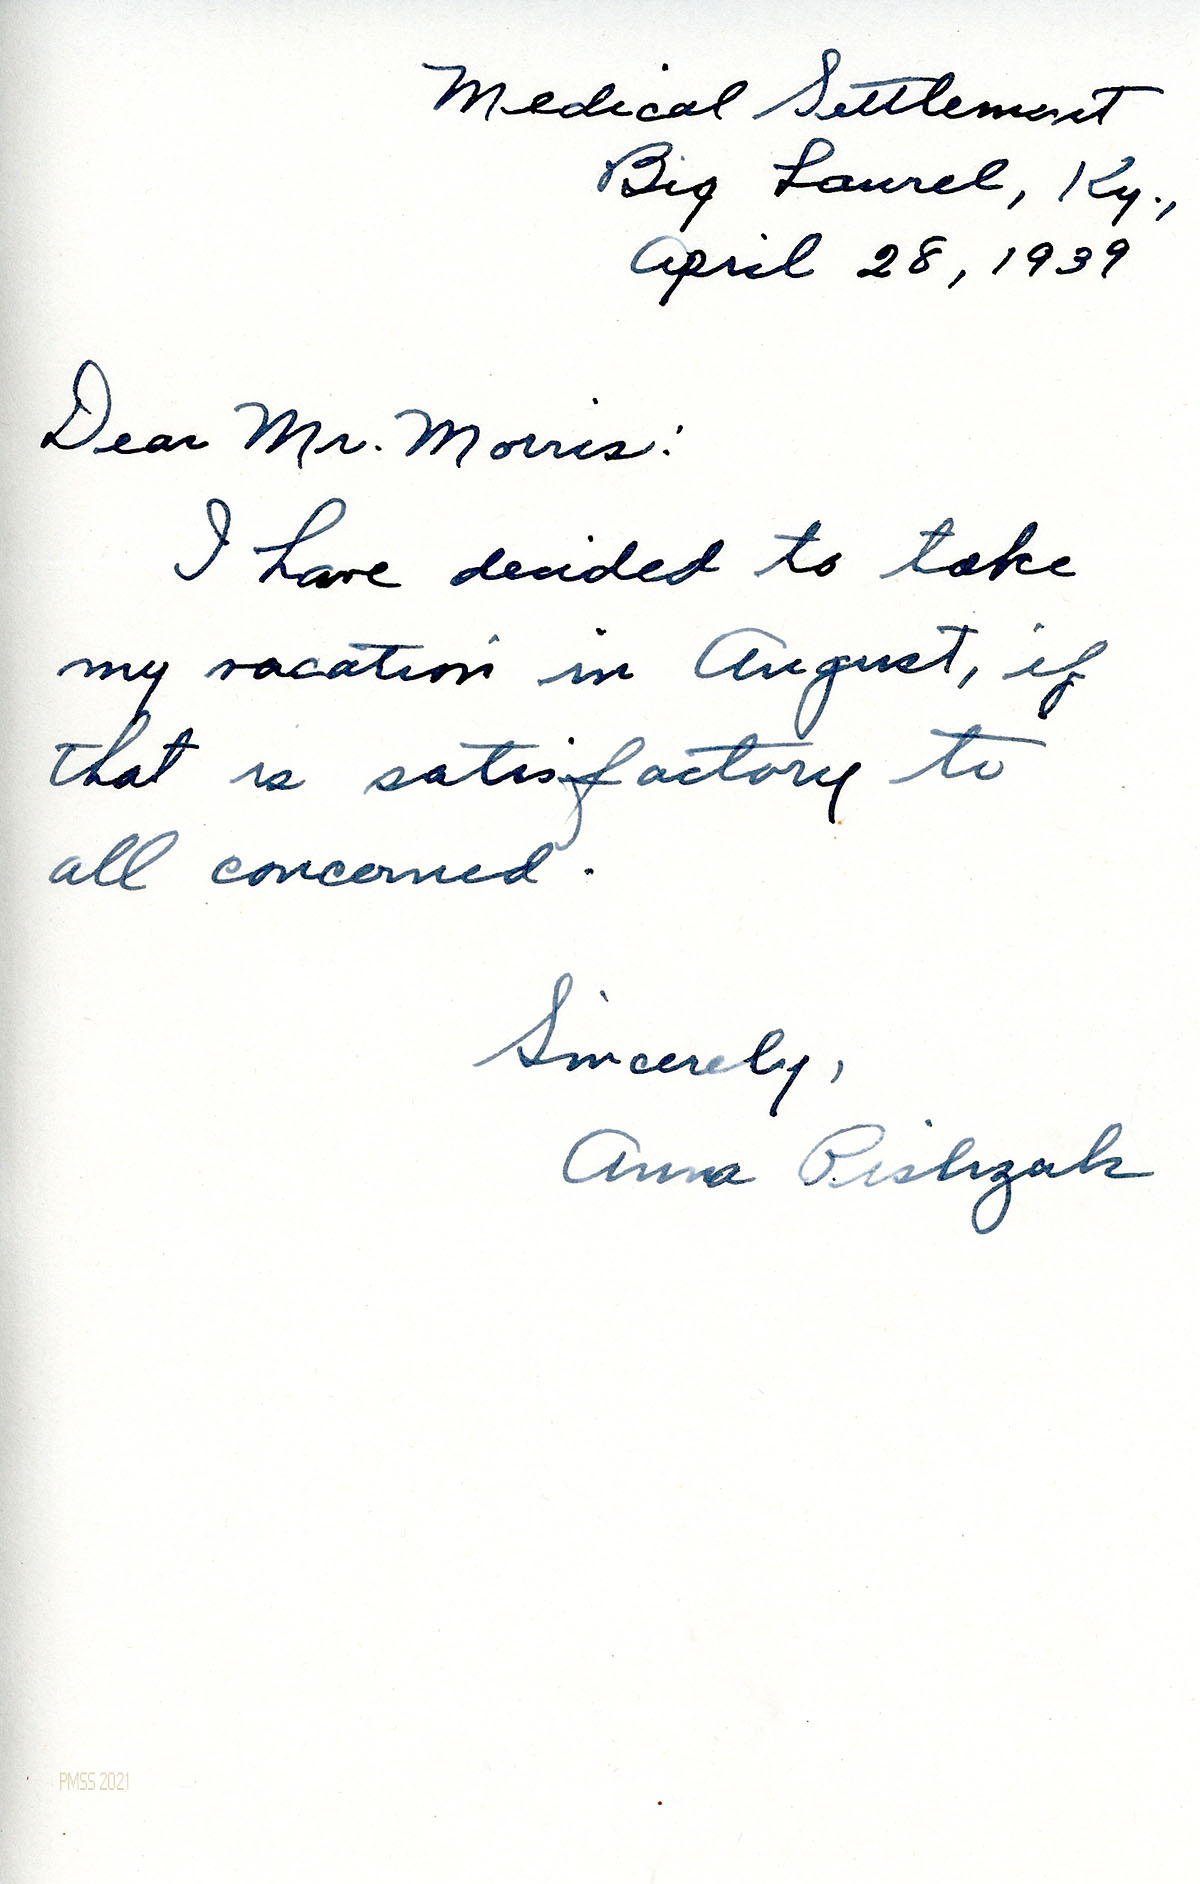 Medical Settlement
Big Laurel, Ky.,
April 28, 1939
Dear Mr. Morris:
I have decided to take
my vacation in August, if
that is satisfactory to
all concerned.
Sincerely,
Anna
PMSS 2021